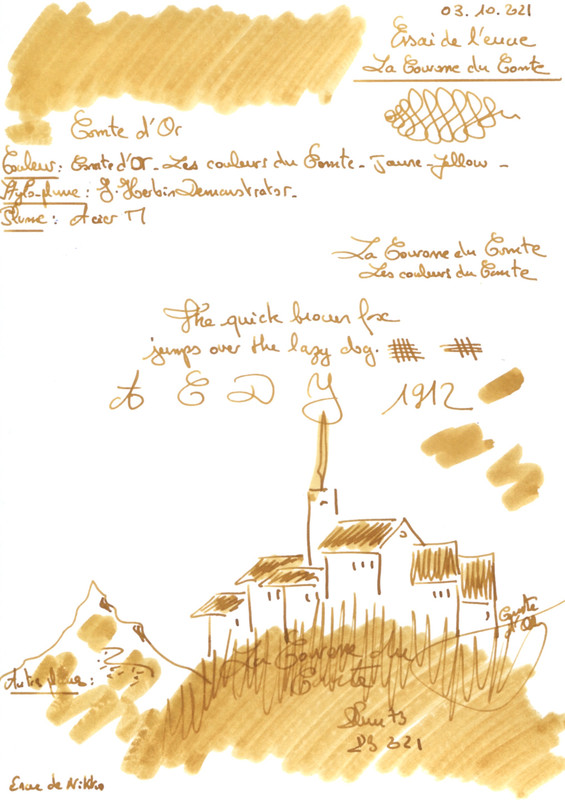 03.10.2021
Essai de l'encre
La Couronne du Comte
Comte d'Or
Couleur: Comte d'Or - Les couleurs du Comte - Jaune - Yellow -
Stylo-plume: J. Herbin Demonstrator -
Plume: Acier M
La Couronne du Comte
Les couleurs du Comte
The quick brown fox
jumps over the lazy dog.
A E D Y 1912
Comte
d'Or
La Couronne du
Comte
Autre plume:
Encre de Nikko